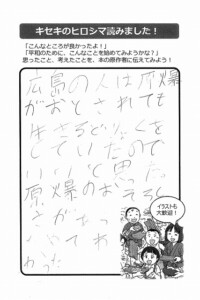 キセキのヒロシマ読みました！
「こんなところが良かったよ！」
「平和のために、こんなことを始めてみようかな？」
思ったこと、考えたことを、本の原作者に伝えてみよう！
広島の人は原爆
がおとされても
生きるどりょくを
していたので
いいと思った
原爆のおそろし
さがつたわって
イラストも
大歓迎！